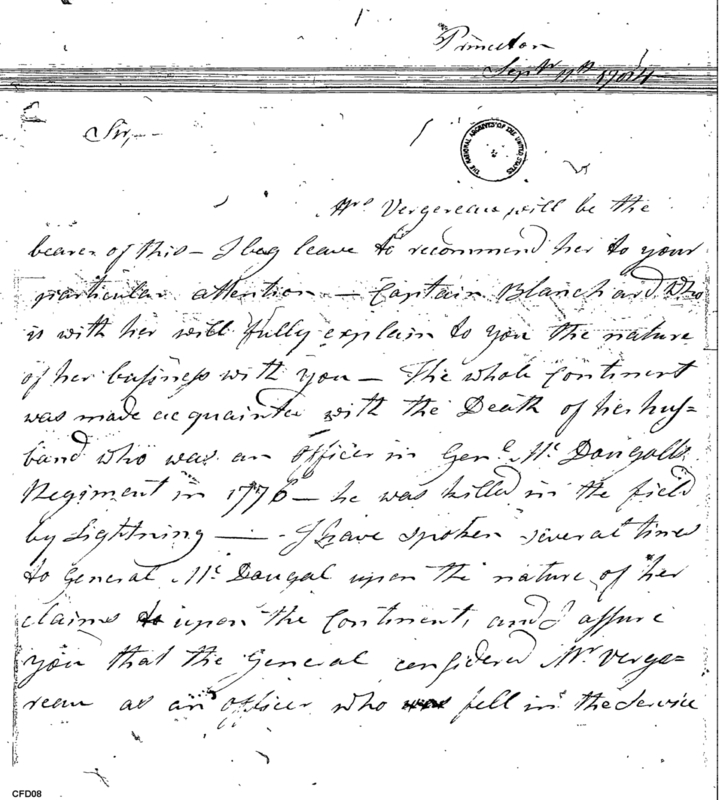 Princeton
Septr 11th
Sir,—
THE NATIONAL ARCHIVES OF THE UNITED STATES
Mrs Vergereau will be the
bearer of this — I beg leave to recommend her to your
particular attention — Captain Blanchard who
is with her will fully explain to you the nature
of her business with you — The whole Continent
was made acquainted with the Death of her hus=
band who was an officer in Genl. Mc. Dougalls
Regiment in 1776 — he was killed in the field
by Lightning — I have spoken several times
to General Mc. Dougal upon the nature of her
claims to upon the Continent, and I assure
you that the General considered Mr. Verge=
reau as an officer who was fell in the Service
CFD08